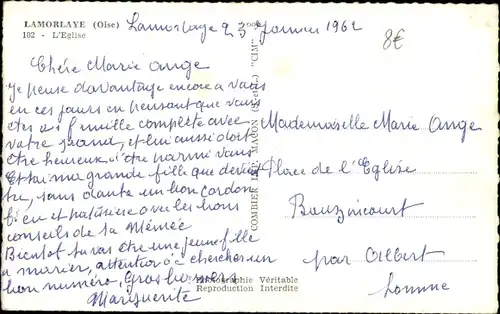 LAMORLAYE (Oise)
102 - L'Eglise
Lamorlaye 23 Janvier 1962
8€
Chère Marie Ange
Je pense davantage encore a vous
en ces jours en pensant que vous
êtes a famille complète avec
votre grand, et lui aussi doit
être heureux d'être parmi vous
Et tai ma grande fille que devient
tu, sans doute un bon cordon
bleu et patissière avec les bons
conseils de ta Mémée
Bientot tu vas être une jeune fille
a marier, attention a chercher un
bon numéro, Gros
Marguerite
COMBIER IMP. MACON "CIM"
Photographie Véritable
Reproduction Interdite
Mademoiselle Marie Ange
Place de l'Eglise
Bouzincourt
par Albert
Somme